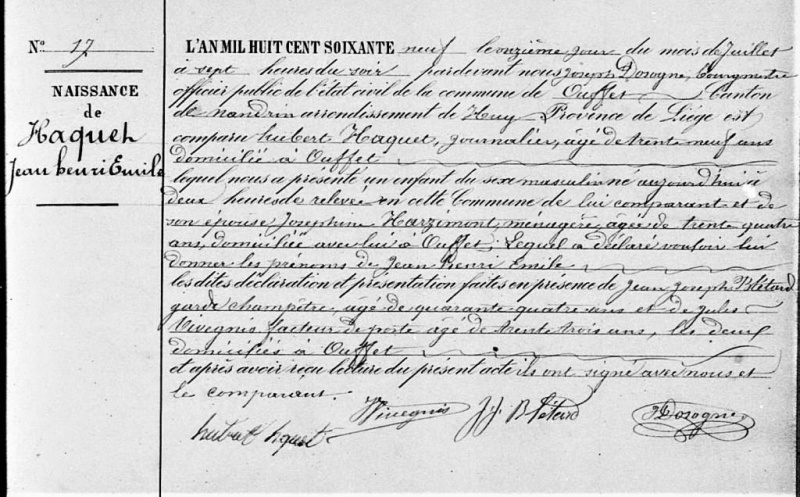 N° 17
NAISSANCE
de
Haquet
Jean henri Emile
L'AN MIL HUIT CENT SOIXANTE neuf le onzième jour du mois de Juillet
à sept heures du soir pardevant nous Joseph Dosogne, Bourgmestre
officier public de l'état civil de la commune de Ouffet Canton
de nandrin arrondissement de Huy Province de Liège est
comparu hubert Haquet, journalier, âgé de trente neuf ans
domicilié à Ouffet
lequel nous a présenté un enfant du sexe masculin né aujourd'hui à
deux heures de relevée en cette Commune de lui comparant et de
son épouse Josephine Harzimont, ménagère, agée de trente quatre
ans, domiciliée avec lui à Ouffet; Lequel a déclaré vouloir lui
donner les prénoms de Jean henri Emile
les dites déclaration et présentation faites en présence de Jean Joseph Blétard
garde champêtre, âgé de quarante quatre ans et de Jules
Vivegnis facteur de poste agé de trente trois ans, les deux
domiciliés à Ouffet
et après avoir reçu lecture du présent acte ils ont signé avec nous et
le comparant.
hubert haquet Vivegnis JJ Blétard JDosogne